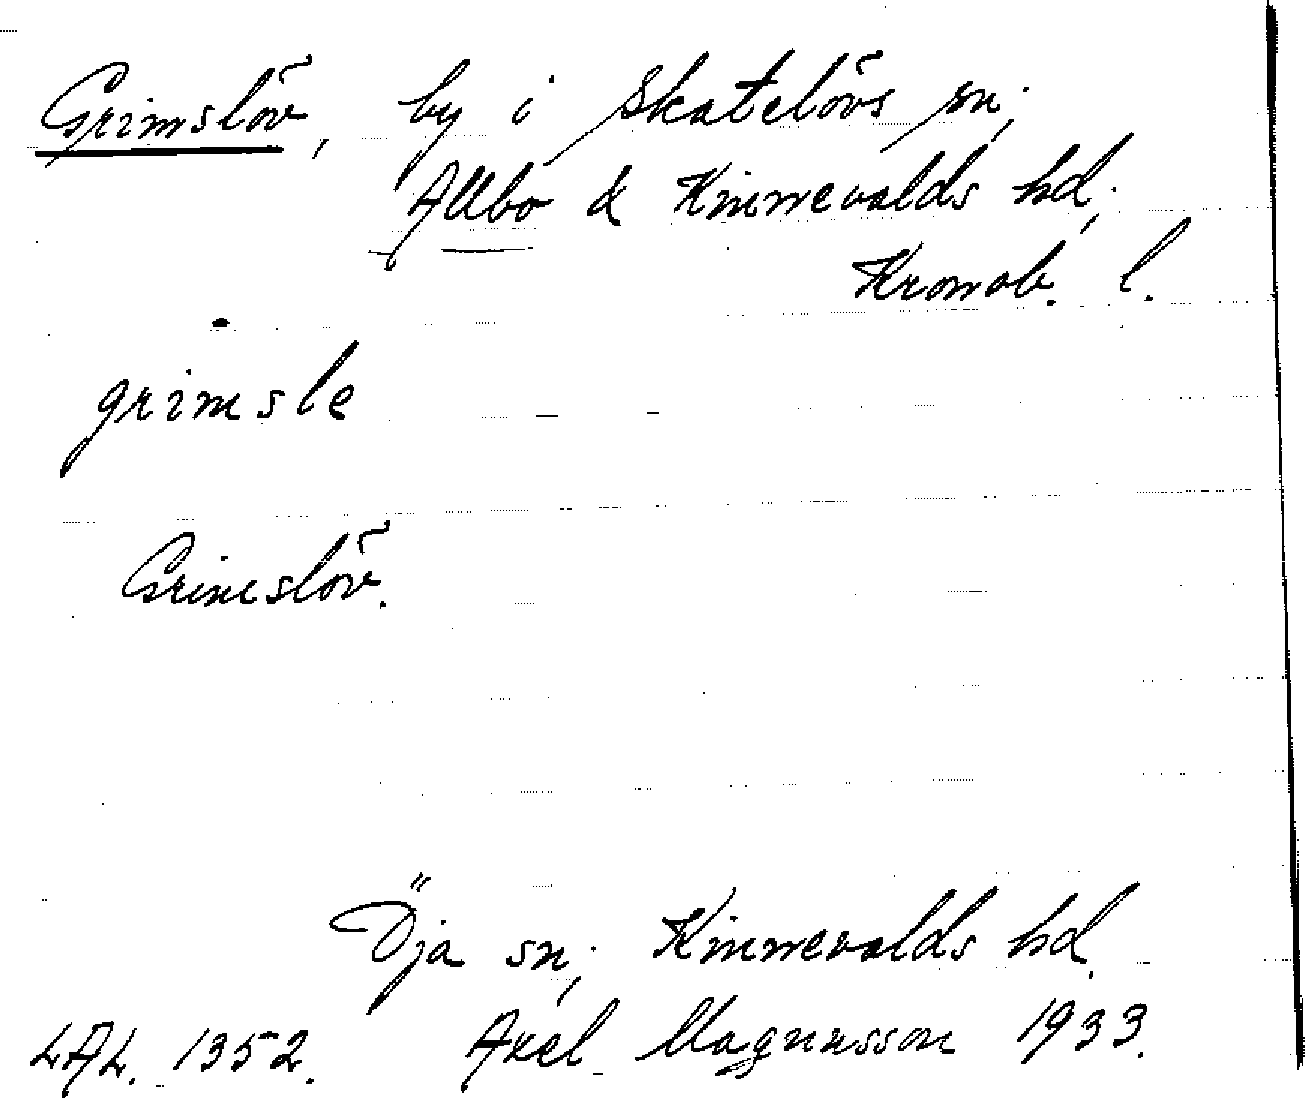 Grimslöv, by i Skatelövs sn,
Allbo & Kinnevalds hd,
Kronob. l.
grimsle
Grimslöv.
Öja sn, Kinnevalds hd.
LAL. 1352. Axel Magnusson 1933.